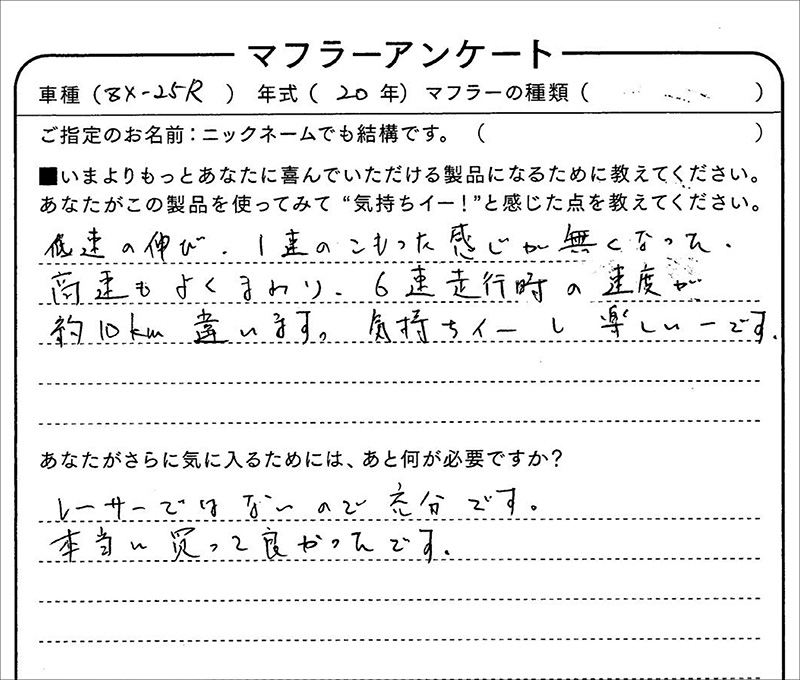 マフラーアンケート
車種（ZX-25R ） 年式（ 20 年） マフラーの種類（ ）
ご指定のお名前：ニックネームでも結構です。（ ）
■いまよりもっとあなたに喜んでいただける製品になるために教えてください。
あなたがこの製品を使ってみて“気持ちイー！”と感じた点を教えてください。
低速の伸び、1速のこもった感じが無くなった、
高速もよくまわり、6速走行時の速度が
約10km違います。気持ちイーし楽しいーです。
あなたがさらに気に入るためには、あと何が必要ですか？
レーサーではないので充分です。
本当に買って良かったです。